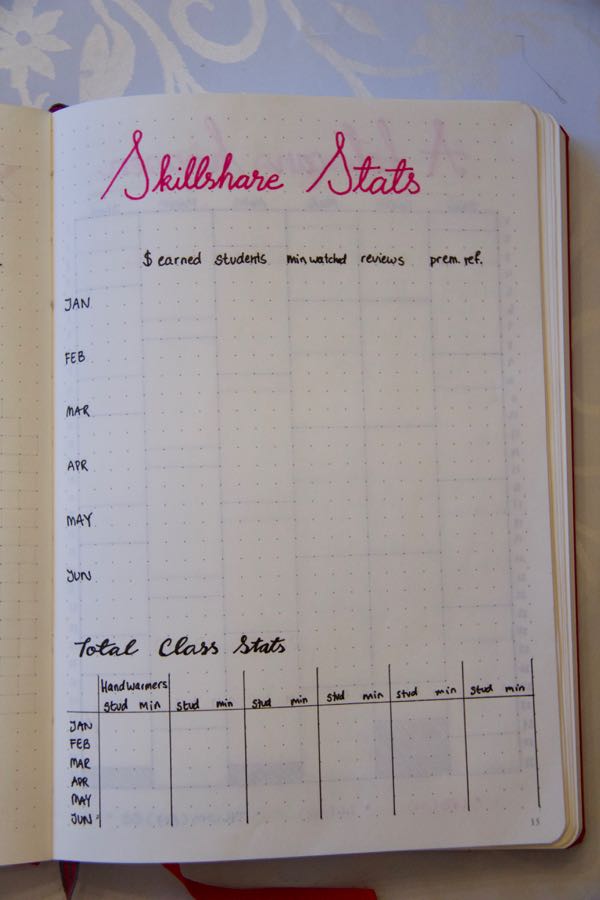 Skillshare Stats
$ earned students min watched reviews prem. ref.
JAN
FEB
MAR
APR
MAY
JUN
Total Class Stats
Handwarmers
Stud Min stud min stud min stud min stud min stud min
JAN
FEB
MAR
APR
MAY
JUN
15